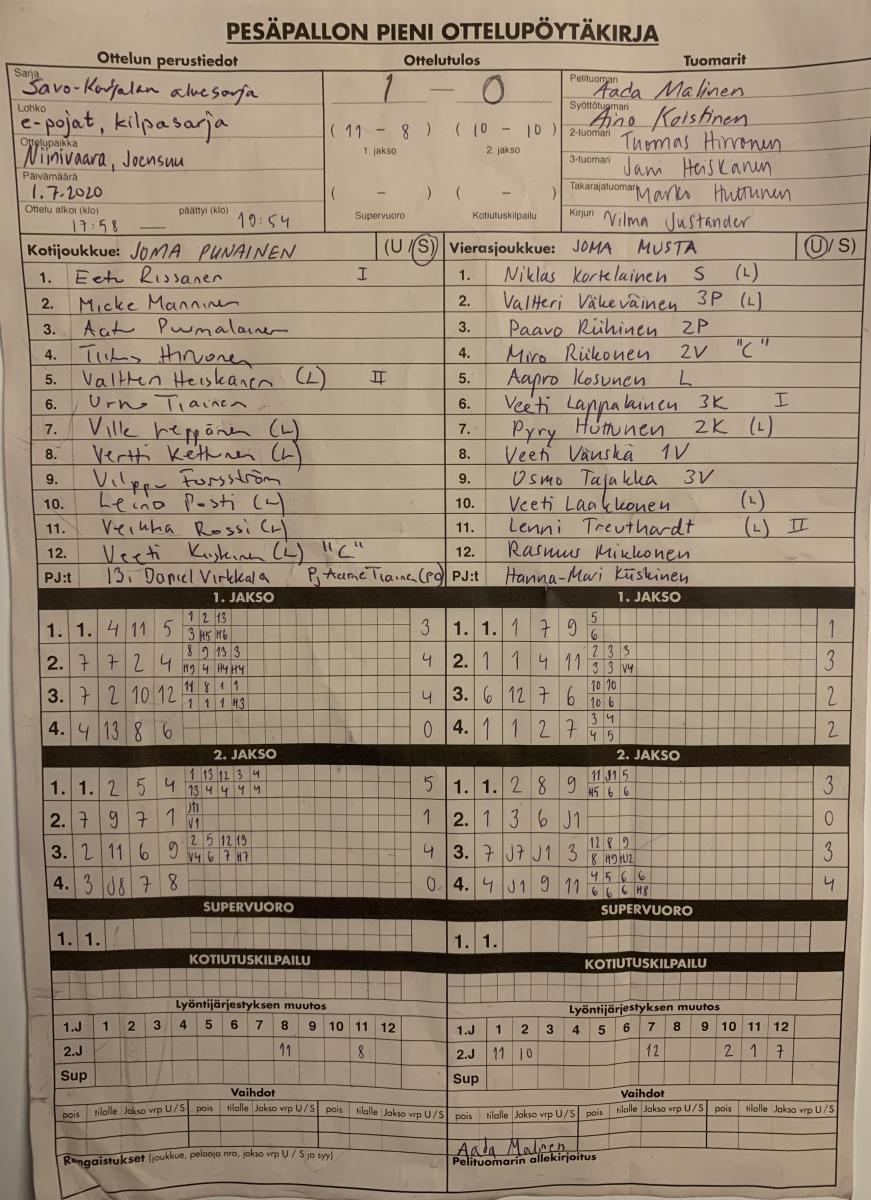 PESÄPALLON PIENI OTTELUPÖYTÄKIRJA
Ottelun perustiedot Ottelutulos Tuomarit
Sarja Savo-Karjalan aluesarja
Lohko e-pojat, kilpasarja
Ottelupaikka Niinivaara, Joensuu
Päivämäärä 1.7.2020
Ottelu alkoi (klo) päättyi (klo)
17:58 — 19:54
1 — 0
( 11 - 8 ) ( 10 - 10 )
1. jakso 2. jakso
( - ) ( - )
Supervuoro Kotiutuskilpailu
Pelituomari Aada Malinen
Syöttötuomari Aino Koistinen
2-tuomari Tuomas Hirvonen
3-tuomari Jani Heiskanen
Takarajatuomari Marko Huttunen
Kirjuri Vilma Justander
Kotijoukkue: JOMA PUNAINEN (U / S) Vierasjoukkue: JOMA MUSTA (U / S)
1. Eetu Rissanen I 1. Niklas Kortelainen S (L)
2. Micke Manninen 2. Valtteri Väkeväinen 3P (L)
3. Aatu Purmalainen 3. Paavo Riihinen 2P
4. Titus Hirvonen 4. Miro Riikonen 2V "C"
5. Valtteri Heiskanen (L) II 5. Aapro Kosunen L
6. Urho Tiainen 6. Veeti Lappalainen 3K I
7. Ville Leppänen (L) 7. Pyry Huttunen 2K (L)
8. Vertti Kettunen (L) 8. Veeti Vänskä 1V
9. Vilppu Forsström 9. Osmo Tajakka 3V
10. Leino Posti (L) 10. Veeti Laakkonen (L)
11. Veikka Rossi (L) 11. Lenni Treuthardt (L) II
12. Veeti Kiiskinen (L) "C" 12. Rasmus Mikkonen
PJ:t 13. Daniel Virkkala Pj Aarne Tiainen PJ:t Hanna-Mari Kiiskinen
1. JAKSO 1. JAKSO
1 2 13 5
1. 1. 4 11 5 3 1. 1. 1 7 9 1
3 H5 H6 6
8 9 13 3 2 3 3
2. 7 7 2 4 4 2. 1 1 4 11 3
H9 4 H4 H4 3 3 V4
11 8 1 1 10 10
3. 7 2 10 12 4 3. 6 12 7 6 2
1 1 1 H3 10 6
3 4
4. 4 13 8 6 0 4. 1 1 2 7 2
4 5
2. JAKSO 2. JAKSO
1 13 12 3 4 11 J1 5
1. 1. 2 5 4 5 1. 1. 2 8 9 3
13 4 4 4 4 H5 6 6
J11
2. 7 9 7 1 1 2. 1 3 6 J1 0
V1
2 5 12 13 12 8 9
3. 2 11 6 9 4 3. 7 J7 J1 3 3
V4 6 7 H7 8 H9 HJ2
4 5 6 6
4. 3 J8 7 8 0 4. 4 J1 9 11 4
6 6 6 H8
SUPERVUORO SUPERVUORO
1. 1. 1. 1.
KOTIUTUSKILPAILU KOTIUTUSKILPAILU
Lyöntijärjestyksen muutos Lyöntijärjestyksen muutos
1.J 1 2 3 4 5 6 7 8 9 10 11 12 1.J 1 2 3 4 5 6 7 8 9 10 11 12
2.J 11 8 2.J 11 10 12 2 1 7
Sup Sup
Vaihdot Vaihdot
pois tilalle Jakso vrp U / S pois tilalle Jakso vrp U / S pois tilalle Jakso vrp U / S pois tilalle Jakso vrp U / S pois tilalle Jakso vrp U / S pois tilalle Jakso vrp U / S
Aada Malinen
Rangaistukset (joukkue, pelaaja nro, jakso vrp U / S ja syy) Pelituomarin allekirjoitus